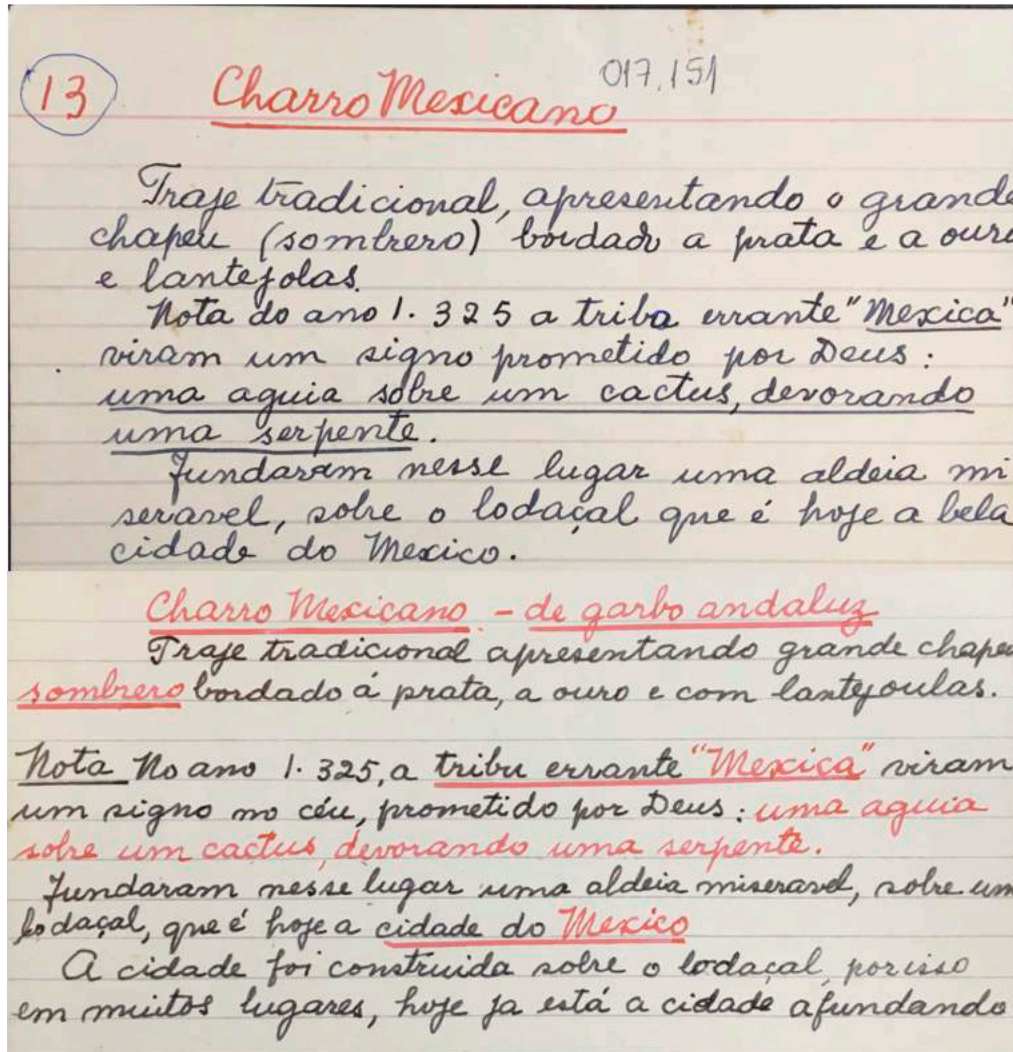 13 Charro Mexicano 017.151
Traje tradicional, apresentando o grande
chapeu (sombrero) bordado a prata e a ouro
e lantejolas.
Nota do ano 1.325 a triba errante "Mexica"
viram um signo prometido por Deus:
uma aguia sôbre um cactus, devorando
uma serpente.
Fundaram nesse lugar uma aldeia mi
seravel, sobre o lodaçal que é hoje a bela
cidade do Mexico.
Charro Mexicano - de garbo andaluz
Traje tradicional apresentando grande chapeu
sombrero bordado á prata, a ouro e com lantejoulas.
Nota No ano 1.325, a tribu errante "Mexica" viram
um signo no céu, prometido por Deus: uma aguia
sobre um cactus, devorando uma serpente.
Fundaram nesse lugar uma aldeia miseravel, sobre um
lodaçal, que é hoje a cidade do Mexico
A cidade foi construida sobre o lodaçal, por isso
em muitos lugares, hoje ja está a cidade afundando